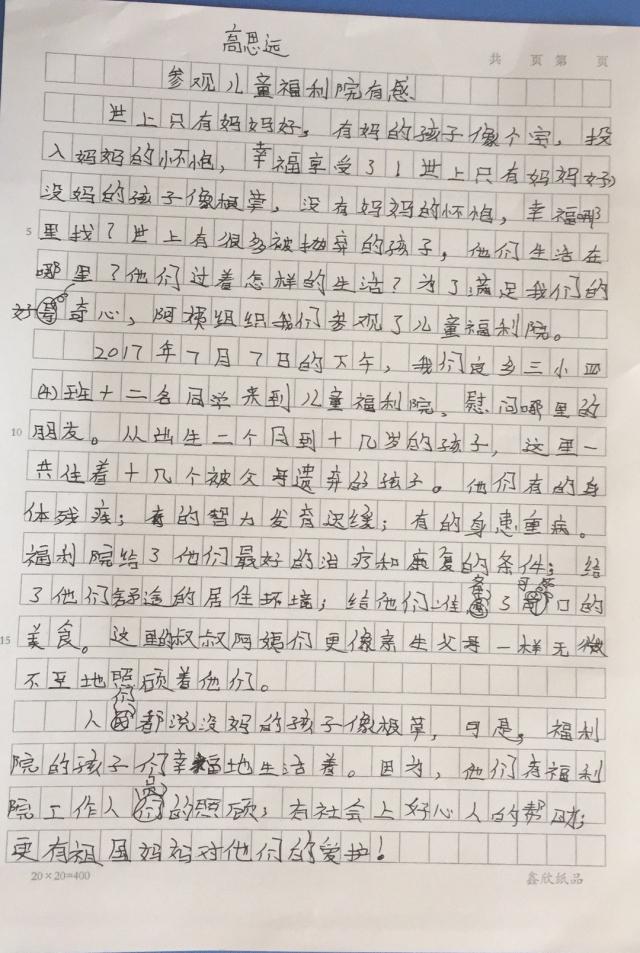 高思远
共 页 第 页
参观儿童福利院有感
世上只有妈妈好，有妈的孩子像个宝，投
入妈妈的怀抱，幸福享受了！世上只有妈妈好，
没妈的孩子像根草，没有妈妈的怀抱，幸福哪
5 里找？世上有很多被抛弃的孩子，他们生活在
哪里？他们过着怎样的生活？为了满足我们的
好奇心，阿姨组织我们参观了儿童福利院。
2017年7月7日的下午，我们良乡三小四
(4)班十二名同学来到儿童福利院，慰问哪里的
10 朋友。从出生二个月到十几岁的孩子，这里一
共住着十几个被父母遗弃的孩子。他们有的身
体残疾；有的智力发育迟缓；有的身患重病。
福利院给了他们最好的治疗和康复的条件；给
了他们舒适的居住环境；给他们准备了可口的
15 美食。这里的叔叔阿姨们更像亲生父母一样无微
不至地照顾着他们。
人们都说没妈的孩子像根草，可是，福利
院的孩子们幸福地生活着。因为，他们有福利
院工作人员的照顾；有社会上好心人的帮助；
更有祖国妈妈对他们的爱护！
20×20=400 鑫欣纸品